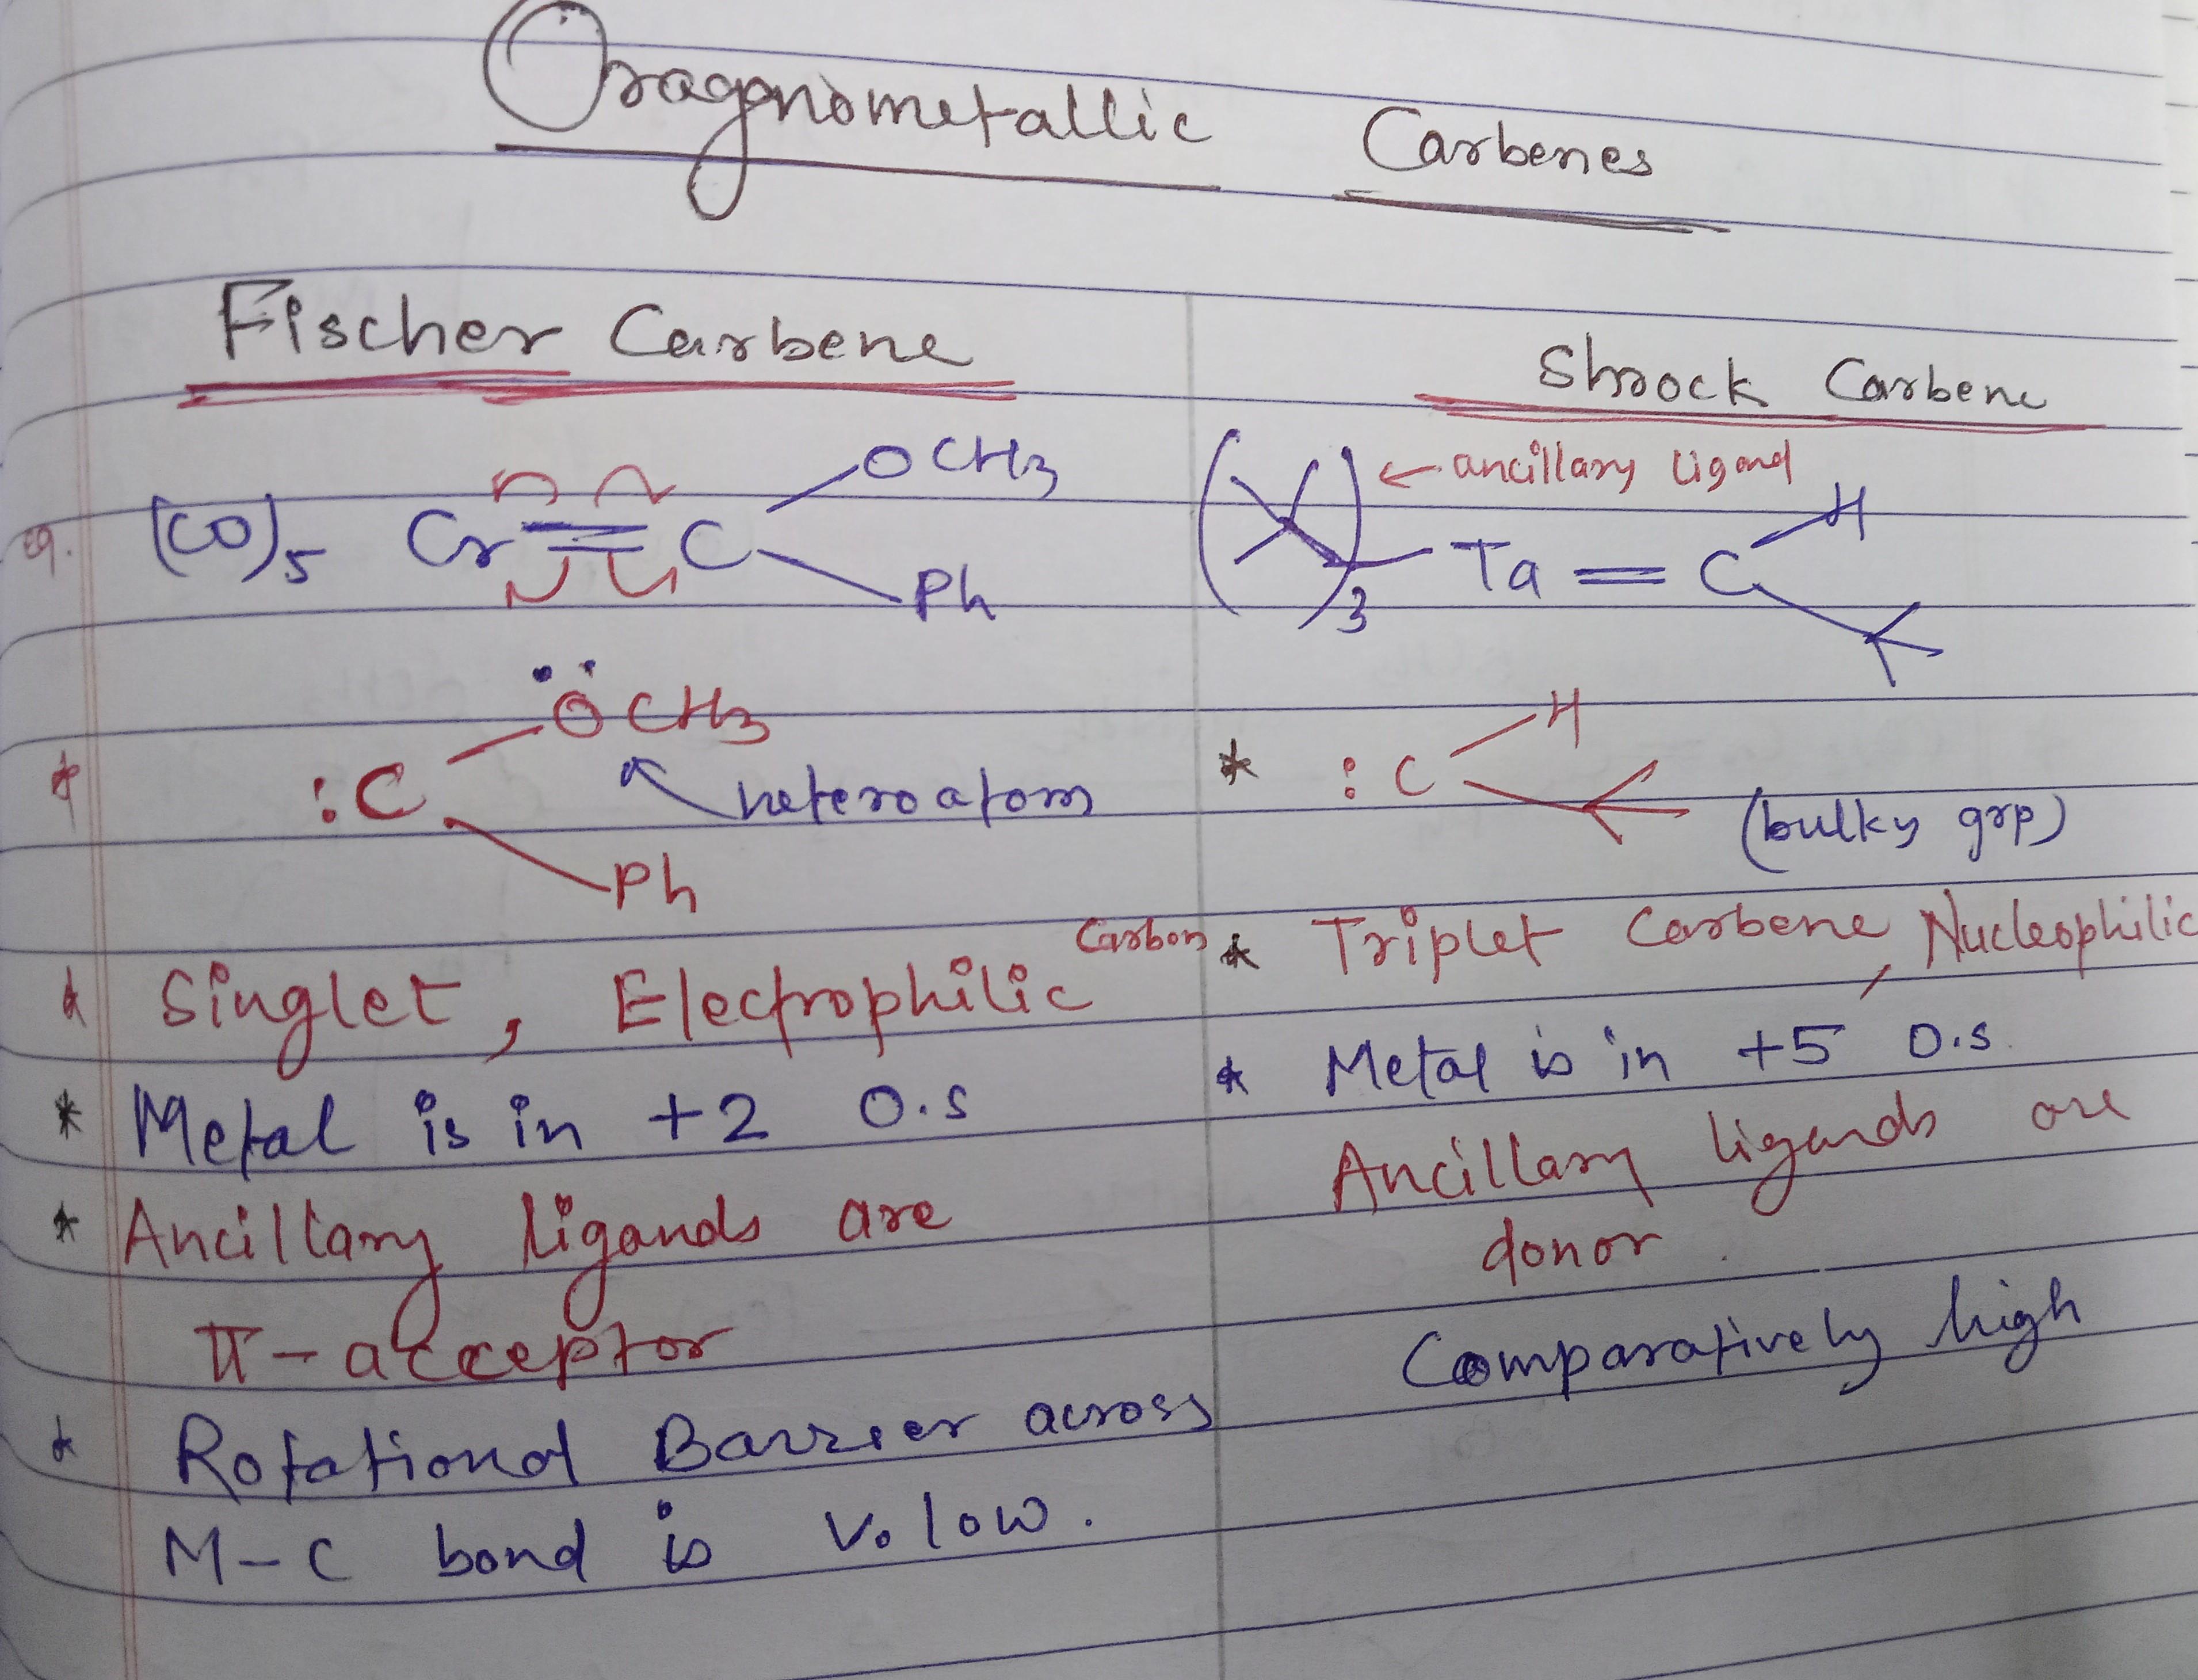 Oragnometallic Carbenes
Fischer Carbene
eg. (CO)5 Cr = C
OCH3
Ph
: C
OCH3
heteroatom
Ph
* Singlet, Electrophilic Carbon
* Metal is in +2 O.S
* Ancillary ligands are
π-acceptor
* Rotational Barrier across
M-C bond is v. low.
Shrock Carbene
( )3 ← ancillary ligand
Ta = C
H
* : C
H
(bulky grp)
* Triplet Carbene, Nucleophilic
* Metal is in +5 O.S.
Ancillary ligands are
donor.
Comparatively high